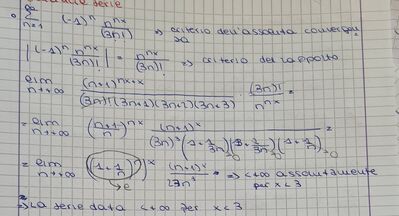 ∑_{n=1}^{∞} (-1)^n n^{nx}/(3n)! => criterio dell'assoluta convergen
za
|(-1)^n n^{nx}/(3n)!| = n^{nx}/(3n)! => criterio del rapporto
lim_{n→+∞} (n+1)^{nx+x}/((3n)!(3n+1)(3n+2)(3n+3)) · (3n)!/n^{nx} =
= lim_{n→+∞} ((n+1)/n)^{nx} (n+1)^x/((3n)^3 (1+1/3n)(1+2/3n)(1+1/n)) =
→0 →0 →0
= lim_{n→+∞} ((1+1/n)^n)^x (n+1)^x/(27n^3) => <+∞ assolutamente
→e per x<3
=> La serie data <+∞ per x<3